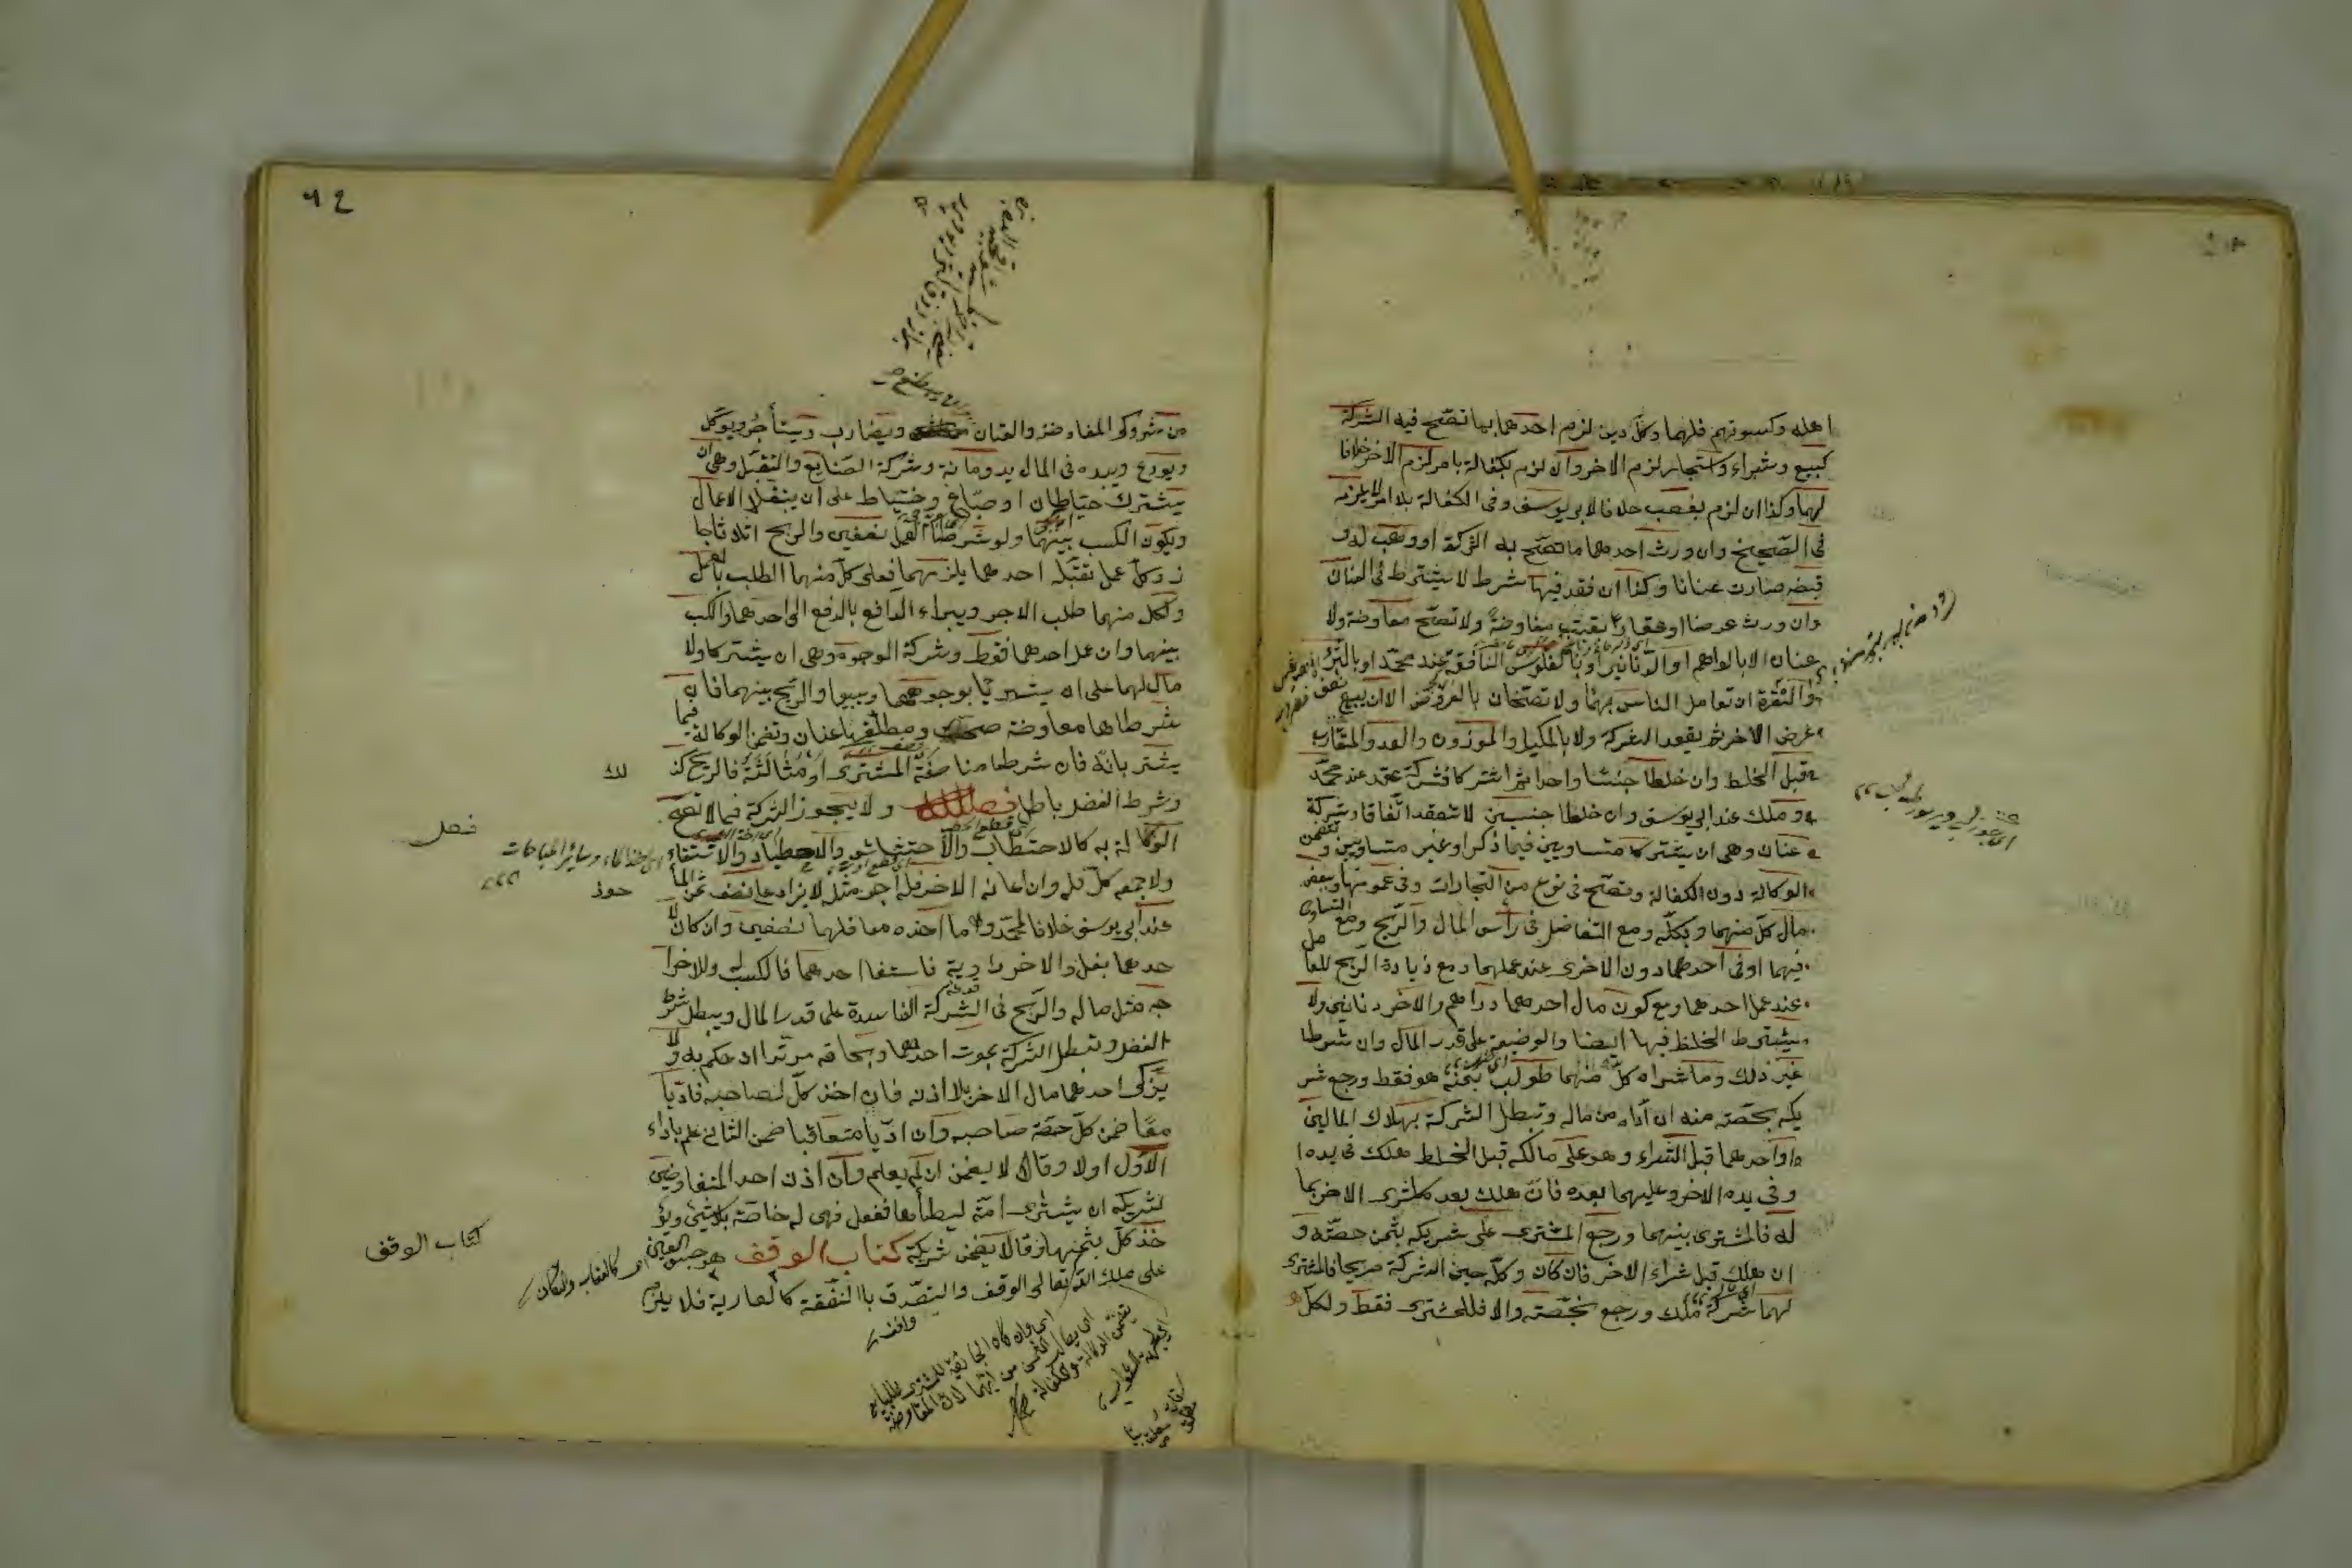 اهله وكسوتهم فلهما وكل دين لزم احدهما بما تصح فيه الشركة
كبيع وشراء واستجار لزم الاخر وان لزم بكفالة بامر لزم الاخر خلافا
لهما وكذا ان لزم بغصب خلافا لابي يوسف وفي الكفالة بلا امر لا يلزمه
في الصحيح وان ورث احدهما ما تصح به الشركة او وهب له و
قبضه صارت عنانا وكذا ان فقد فيها شرط لا يشترط في العنان
وان ورث عرضا او عقارا بقيت مفاوضة ولا تصح مفاوضة ولا
عنان الا بالدراهم او الدنانير او بالفلوس النافقة عند محمد او بالتبر
والنقرة ان تعامل الناس بهما ولا تصحان بالعروض الا ان يبيع نصف
عرض الاخر ثم يعقد الشركة ولا بالمكيل والموزون والعدد المتقارب
قبل الخلط وان خلطا جنسا واحدا ثم اشتركا فشركة عقد عند محمد
وملك عند ابي يوسف وان خلطا جنسين لا تنعقد اتفاقا وشركة
عنان وهي ان يشتركا متساويين فيما ذكر او غير متساويين وتضمن
الوكالة دون الكفالة وتصح في نوع من التجارات وفي عمومها وببعض
مال كل منهما وبكله ومع التفاضل في رأس المال والربح ومع التساوى
فيهما او في احدهما دون الاخرى عند عملهما ومع زيادة الربح للعامل
عند عمل احدهما ومع كون مال احدهما دراهم والاخر دنانير ولا
يشترط الخلط فيها ايضا والوضيعة على قدر المال وان شرطا
غير ذلك وما شراه كل منهما طولب بثمنه هو فقط ورجع شر
يكه بحصته منه ان اداه من ماله وتبطل الشركة بهلاك المالين
او احدهما قبل الشراء وهو على مالكه قبل الخلط هلك في يده ا
و في يده الاخر وعليهما بعده فان هلك بعد ما شرى الاخر بما
له فالمشترى بينهما ورجع المشترى على شريكه بثمن حصته و
ان هلك قبل شراء الاخر فان كان وكله حين الشركة صريحا فالمشترى
لهما شركة ملك ورجع بحصته والا فللمشترى فقط ولكل
٩٤
من شريكي المفاوضة والعنان ويضارب ويستأجر ويوكل
ويودع ويده في المال يد امانة وشركة الصنايع والتقبل وهي ان
يشترك خياطان او صباغ وخياط على ان يتقبلا الاعمال
ويكون الكسب بينهما ولو شرطا العمل نصفين والربح اثلاثا جا
ز وكل عمل تقبله احدهما يلزمهما فعلى كل منهما الطلب بالعمل
ولكل منهما طلب الاجر ويبراء الدافع بالدفع الى احدهما والكسب
بينهما وان عمل احدهما فقط وشركة الوجوه وهي ان يشتركا ولا
مال لهما على ان يشتريا بوجوههما ويبيعا والربح بينهما فان
شرطاها مفاوضة صحت ومطلقها عنان وتضمن الوكالة فيما
يشتريانه فان شرطا مناصفة المشترى او مثالثته فالربح كذ
لك
وشرط الفضل باطل فصل ولا يجوز الشركة فيما لا تصح
فصل
الوكالة به كالاحتطاب والاحتشاش والاصطياد والاستقاء
اى اخذ الماء وسائر المباحات
ولا جمعه كل فله وان اعانه الاخر فله اجر مثله لا يزاد على نصف ثمن المأ
خوذ
عند ابي يوسف خلافا لمحمد وما اخذه معا فلهما نصفين وان كان لا
حدهما بغل والاخر راوية فاستقا احدهما فالكسب له وللاخر ا
جر مثل ماله والربح في الشركة الفاسدة على قدر المال ويبطل شرط
الفضل وتبطل الشركة بموت احدهما وبلحاقه مرتدا ان حكم به ولا
يزكى احدهما مال الاخر بلا اذنه فان اذن كل لصاحبه فاديا
معا ضمن كل حصة صاحبه وان اديا متعاقبا ضمن الثاني علم باداء
الاول اولا وقالا لا يضمن ان لم يعلم وان اذن احد المتفاوضين
لشريكه ان يشترى امة ليطأها ففعل فهى له خاصة بلا شئ ويؤ
خذ كل بثمنها وقالا يضمن شريكه كتاب الوقف هو حبس العين
كتاب الوقف
اى كالعقاب والمكان
على ملك الله تعالى الوقف والتصدق بالنفقة كالعارية فلا يلزم
واقف
اى وان كان الجارية للمشترى
اى يطالب الثمن من ايهما لان المفاوضة
تتضمن الوكالة والكفالة